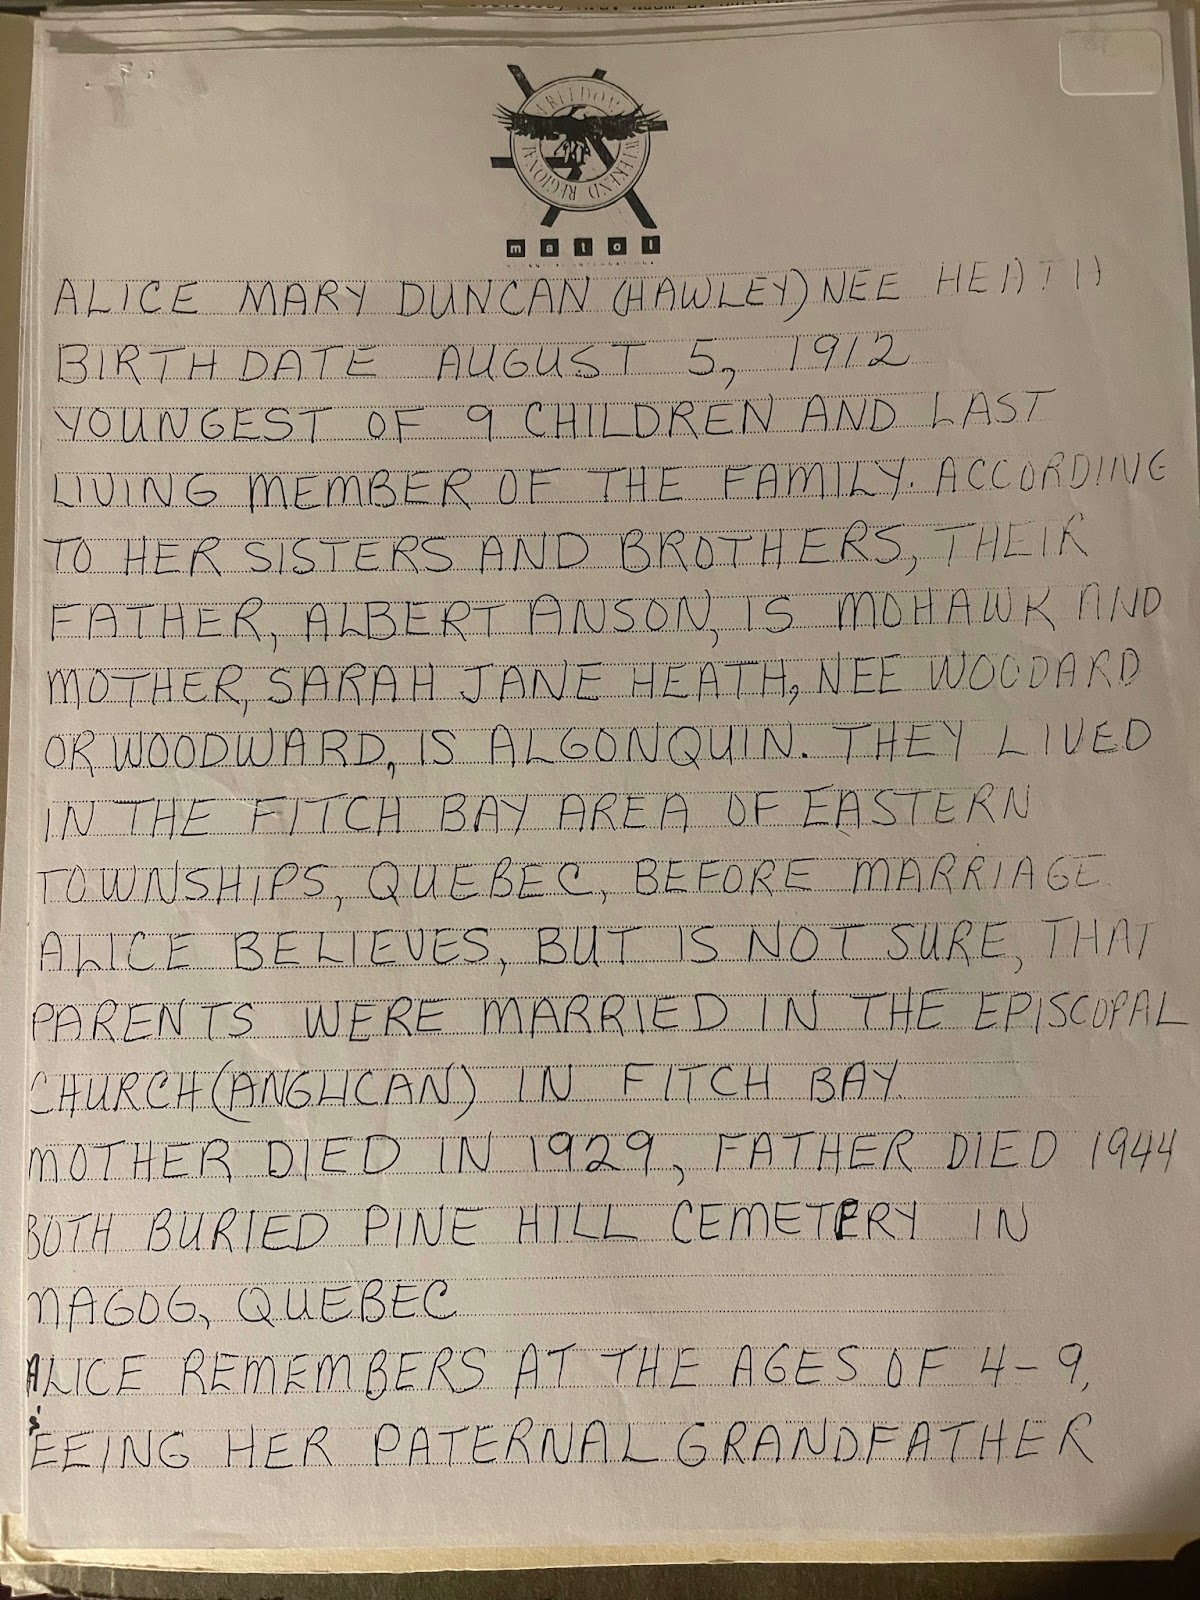 FREEDOM WEEKEND REGIONAL
matol
ALICE MARY DUNCAN (HAWLEY) NEE HEATH
BIRTHDATE AUGUST 5, 1912
YOUNGEST OF 9 CHILDREN AND LAST
LIVING MEMBER OF THE FAMILY. ACCORDING
TO HER SISTERS AND BROTHERS, THEIR
FATHER, ALBERT ANSON, IS MOHAWK AND
MOTHER, SARAH JANE HEATH, NEE WOODARD
OR WOODWARD, IS ALGONQUIN. THEY LIVED
IN THE FITCH BAY AREA OF EASTERN
TOWNSHIPS, QUEBEC, BEFORE MARRIAGE.
ALICE BELIEVES, BUT IS NOT SURE, THAT
PARENTS WERE MARRIED IN THE EPISCOPAL
CHURCH (ANGLICAN) IN FITCH BAY.
MOTHER DIED IN 1929, FATHER DIED 1944
BOTH BURIED PINE HILL CEMETERY IN
MAGOG, QUEBEC
ALICE REMEMBERS AT THE AGES OF 4-9,
SEEING HER PATERNAL GRANDFATHER